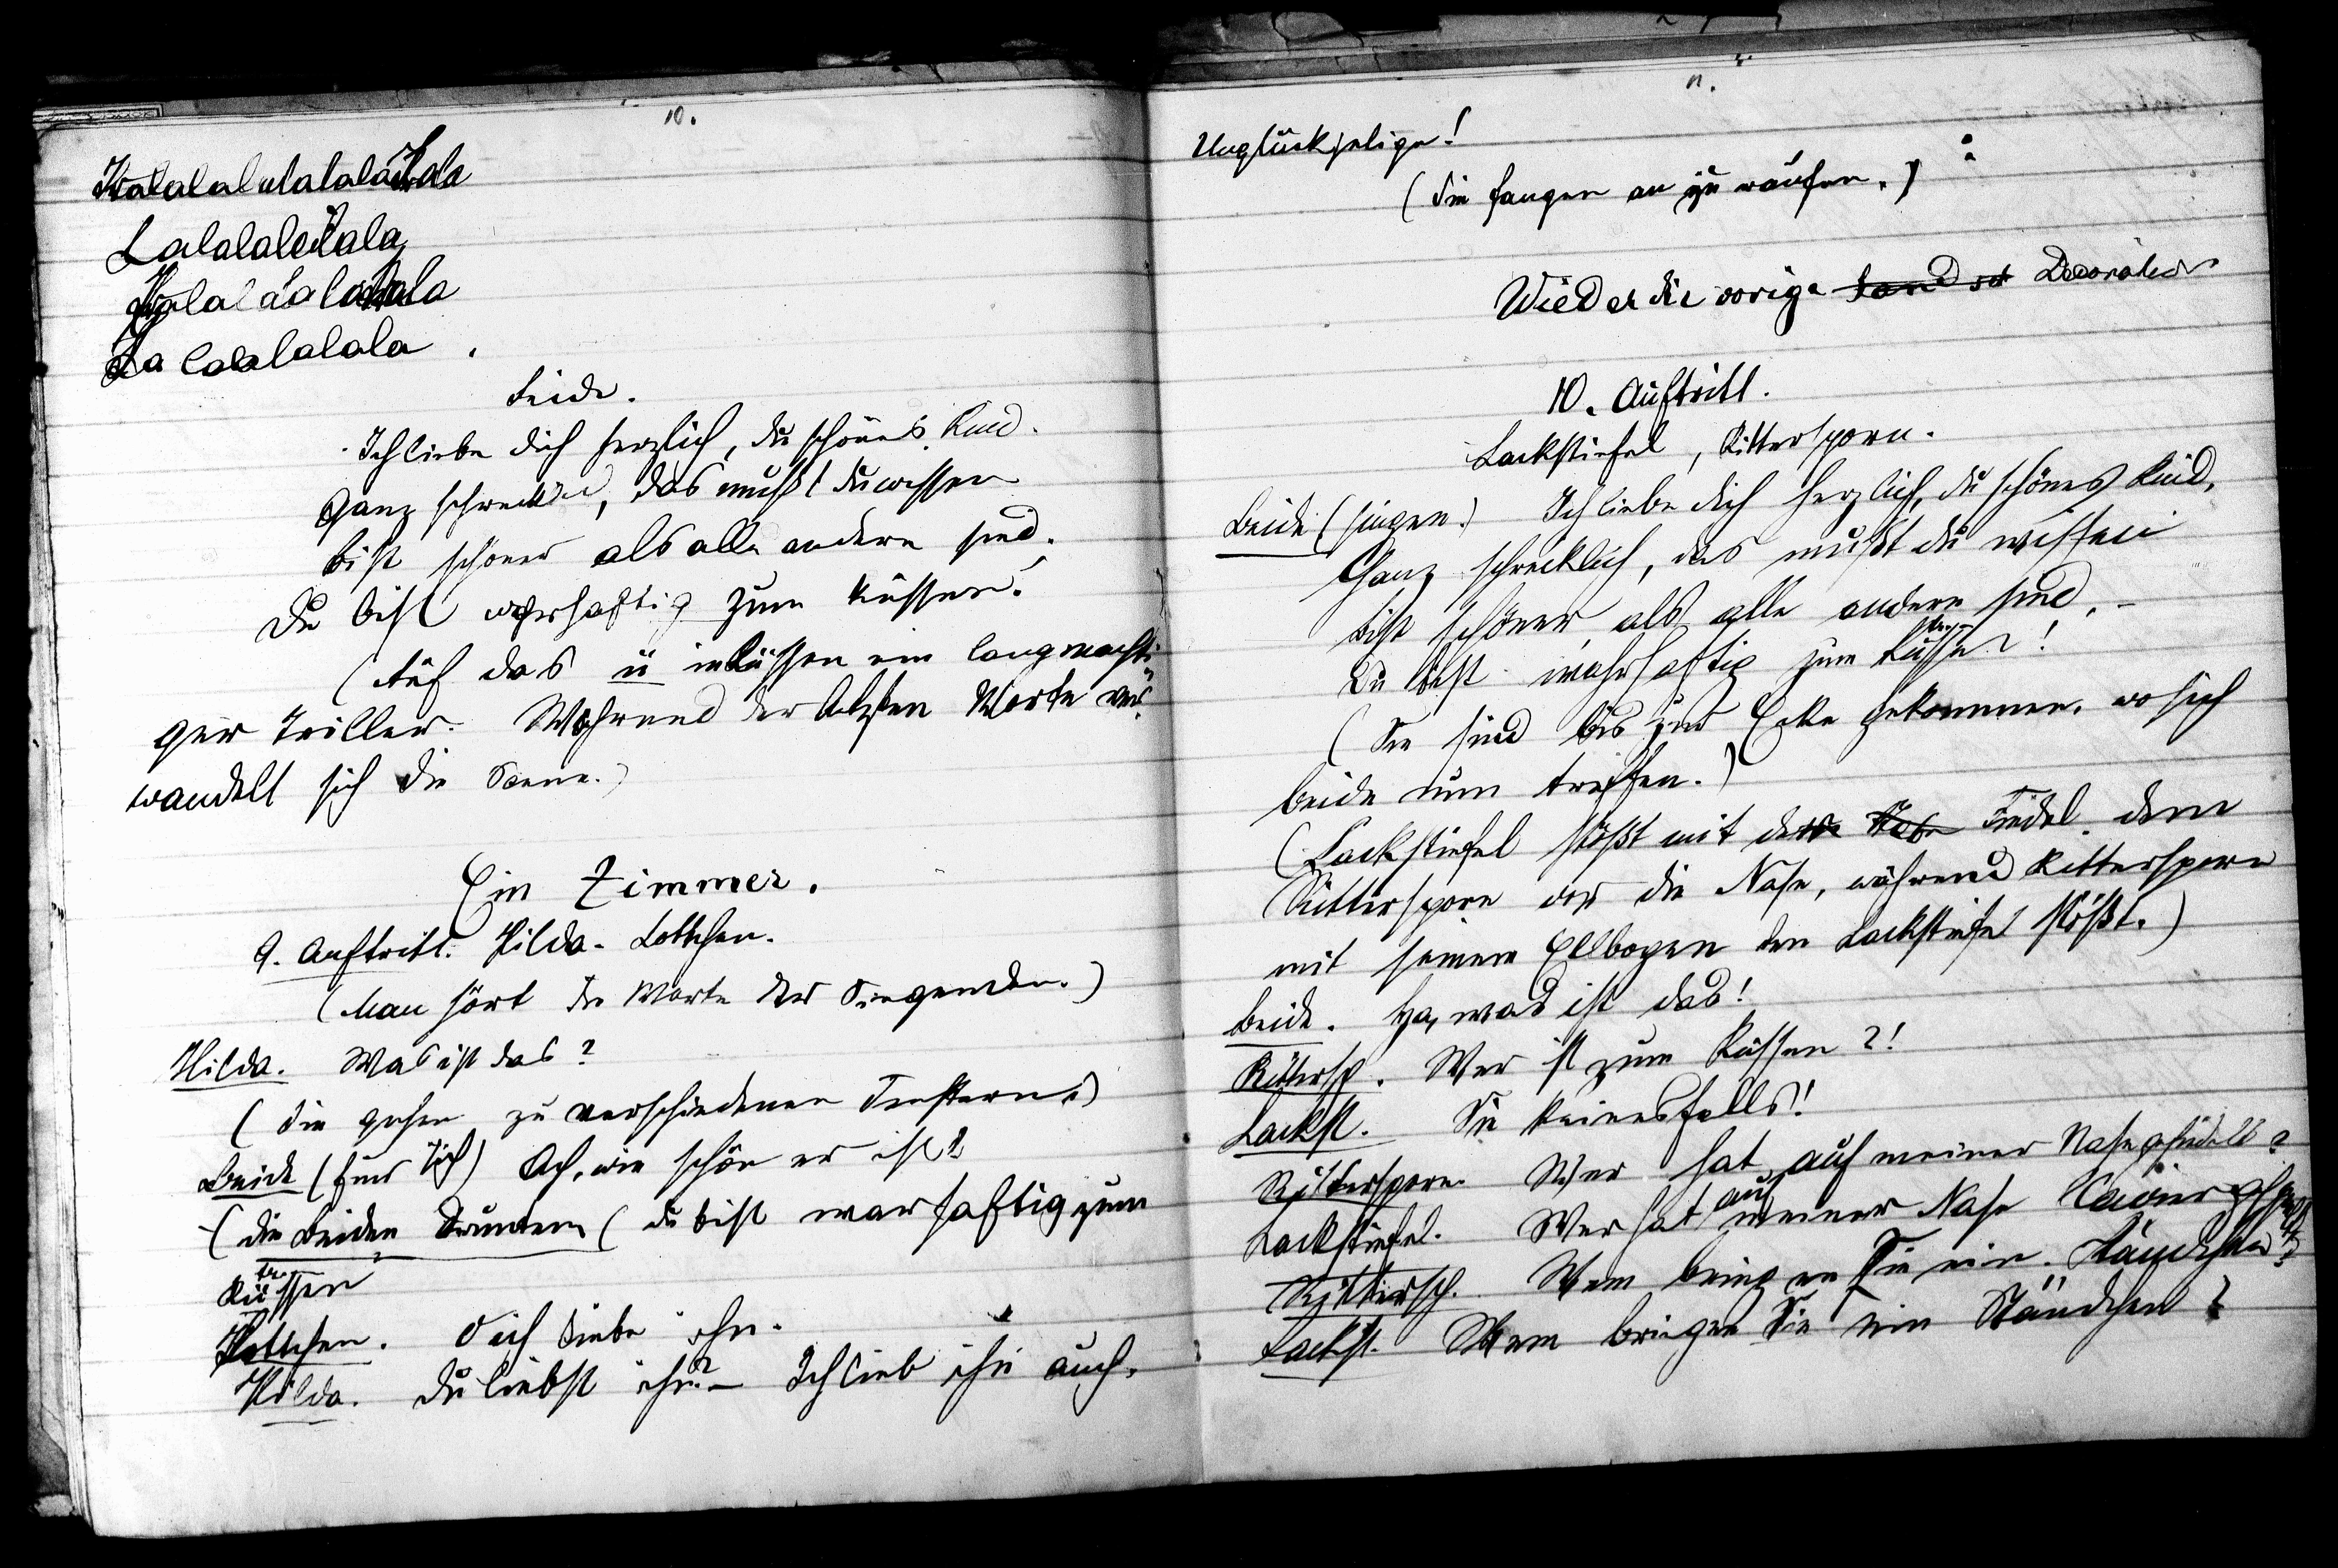 10.
Lalalalalalalalala
Lalalalalala
Lalalalalalala
La lalalalala.
Beide.
Ich liebe dich herzlich, du schönes Kind.
Ganz schrecklich, das mußt du wissen
bist schöner als alle andern sind.
Du bist wahrhaftig zum küssen!
(Auf das ü in küssen ein langmächti-
ger Triller. Während der letzten Worte ver-
wandelt sich die Scene.)
Ein Zimmer.
9. Auftritt. Hilda. Lottchen.
(Man hört die Worte der Singenden.)
Hilda. Was ist das?
(Sie gehen zu verschiedenen Fenstern.)
Beide (für sich) Ach, wie schön er ist!
(die Beiden Drunten) du bist warhaftig zum
tr
Küssen
Lottchen. O ich liebe ihn.
Hilda. Du liebst ihn? – Ich lieb ihn auch.
11.
Unglückselige!
(Sie fangen an zu raufen.)
Wieder die vorige Decoration
10. Auftritt.
Lackstiefel, Rittersporn.
Beide (singen.) Ich liebe dich herzlich, du schönes Kind,
Ganz schrecklich, das mußt du wissen
bist schöner als alle andern sind, –
Du bist wahrhaftig zum Küssen!
(Sie sind bis zur Ecke gekommen, wo sich
beide nun treffen.)
(Lackstiefel stößt mit der Fiedel dem
Rittersporn vor die Nase, während Rittersporn
mit seinem Ellbogen den Lackstiefel stößt.)
Beide. Ha, was ist das!
Rittersp. Wer ist zum Küssen?!
Lackst. Sie keinesfalls!
Rittersporn. Wer hat auf meiner Nase gefiedelt?
Lackstiefel. Wer hat auf meiner Nase Clavier gespielt?
Rittersp. Wem bringen Sie ein Ständchen?
Lackst. Wem bringen Sie ein Ständchen?